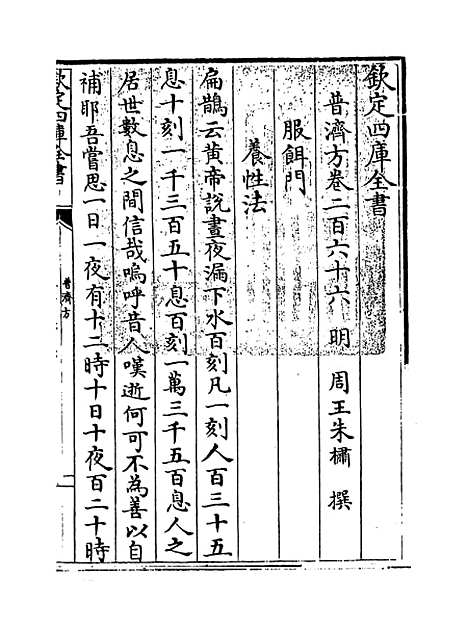 欽定四庫全書
普濟方卷二百六十六 明 周王朱橚 撰
服餌門
養性法
扁鵲云黄帝說晝夜漏下水百刻凡一刻人百三十五
息十刻一千三百五十息百刻一萬三千五百息人之
居世數息之間信哉嗚呼昔人嘆逝何可不為善以自
補耶吾嘗思一日一夜有十二時十日十夜百二十時
欽定四庫全書
普濟方